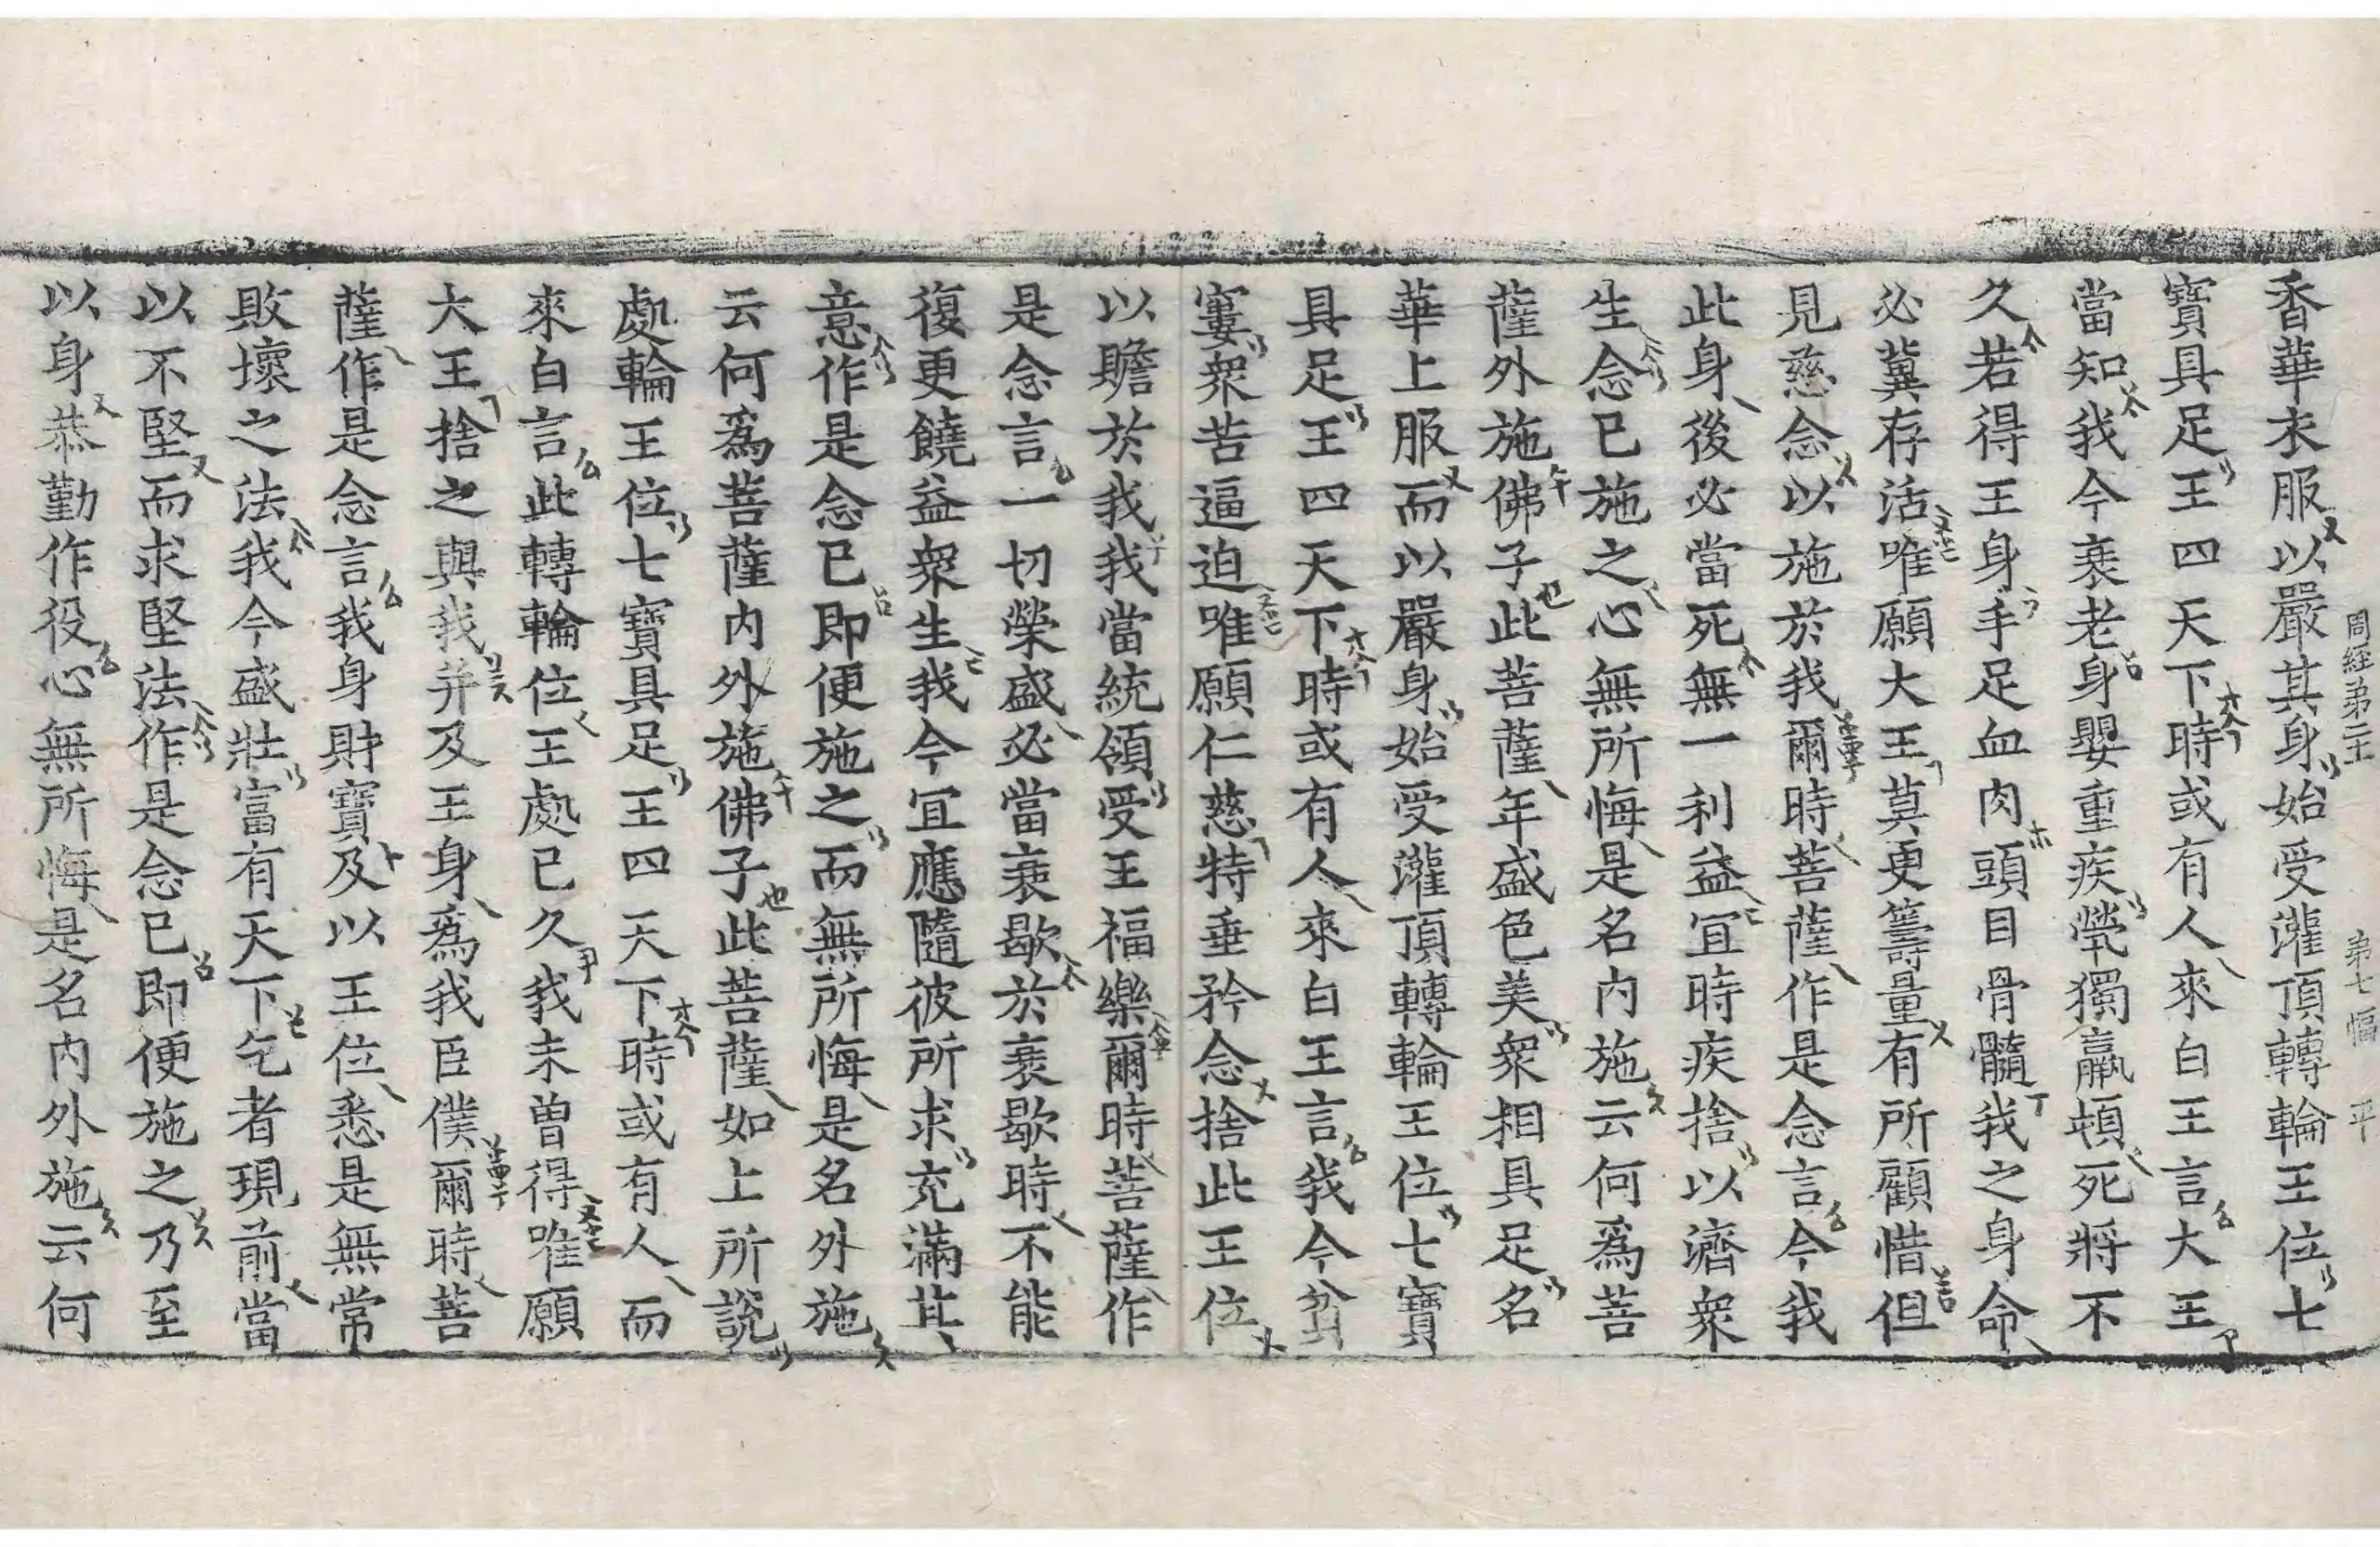 周經第二 主 第七幅 平
香華衣服以嚴其身始受灌頂轉輪王位七
寶具足王四天下時或有人來白王言大王
當知我今衰老身嬰重疾煢獨羸頓死將不
久若得王身手足血肉頭目骨髓我之身命
必冀存活唯願大王莫更籌量有所顧惜但
見慈念以施於我爾時菩薩作是念言今我
此身後必當死無一利益宜時疾捨以濟衆
生念已施之心無所悔是名内施云何爲菩
薩外施佛子此菩薩年盛色美衆相具足名
華上服而以嚴身始受灌頂轉輪王位七寶
具足王四天下時或有人來白王言我今貧
窶衆苦逼迫唯願仁慈特垂矜念捨此王位
以贍於我我當統領受王福樂爾時菩薩作
是念言一切榮盛必當衰歇於衰歇時不能
復更饒益衆生我今宜應隨彼所求充滿其
意作是念已即便施之而無所悔是名外施
云何爲菩薩内外施佛子此菩薩如上所說
處輪王位七寶具足王四天下時或有人而
來白言此轉輪位王處已久我未曾得唯願
大王捨之與我并及王身爲我臣僕爾時菩
薩作是念言我身財寶及以王位悉是無常
敗壞之法我今盛壯富有天下乞者現前當
以不堅而求堅法作是念已即便施之乃至
以身恭勤作役心無所悔是名内外施云何